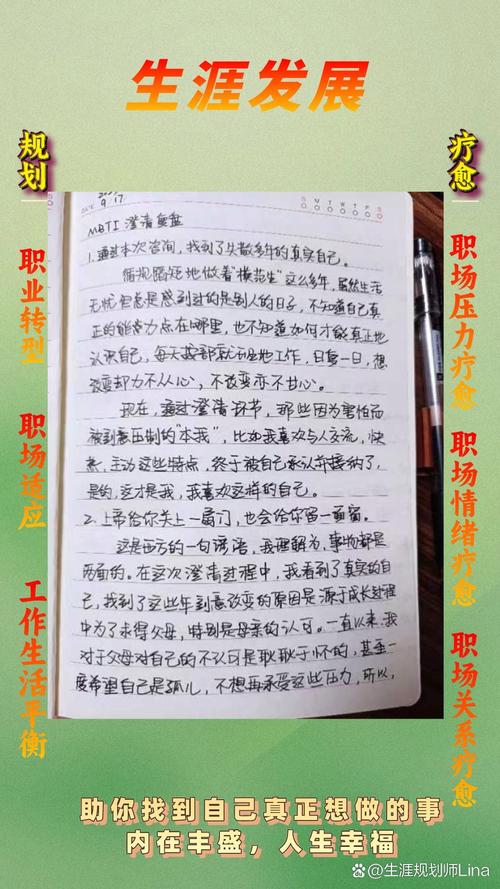 生涯发展
规划
职业转型
职场适应
工作生活平衡
疗愈
职场压力疗愈
职场情绪疗愈
职场关系疗愈
DATE
9.17
S M T W T F S
MBTI 澄清复盘
1.通过本次咨询,找到了失散多年的真实自己。
循规蹈矩地做着"模范生"这么多年,虽然生活
无忧但总是感到过的是别人的日子,不知道自己真
正的能量点在哪里,也不知道如何才能真正地
认识自己,每天按部就班地工作,日复一日,想
改变却力不从心,不改变亦不甘心。
现在,通过澄清环节,那些因为害怕而
被刻意压制的"本我",比如我喜欢与人交流,快
热,主动这些特点,终于被自己承认并接纳了,
是的,这才是我,我喜欢这样的自己。
2.上帝给你关上一扇门,也会给你留一面窗。
这是西方的一句谚语,我理解为,事物都是
两面的。在这次澄清过程中,我看到了真实的自
己,找到了这些年刻意改变的原因是源于成长过程
中为了求得父母,特别是母亲的认可。一直以来,我
对于父母对自己的不认可是耿耿于怀的,甚至一
度希望自己是孤儿,不想再承受这些压力,所以,
助你找到自己真正想做的事
内在丰盛,人生幸福
@生涯规划师Lina